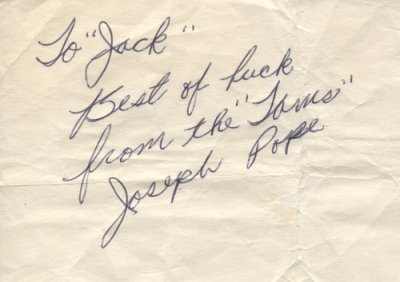 To "Jack"
Best of luck
from the "Tams"
Joseph Pope